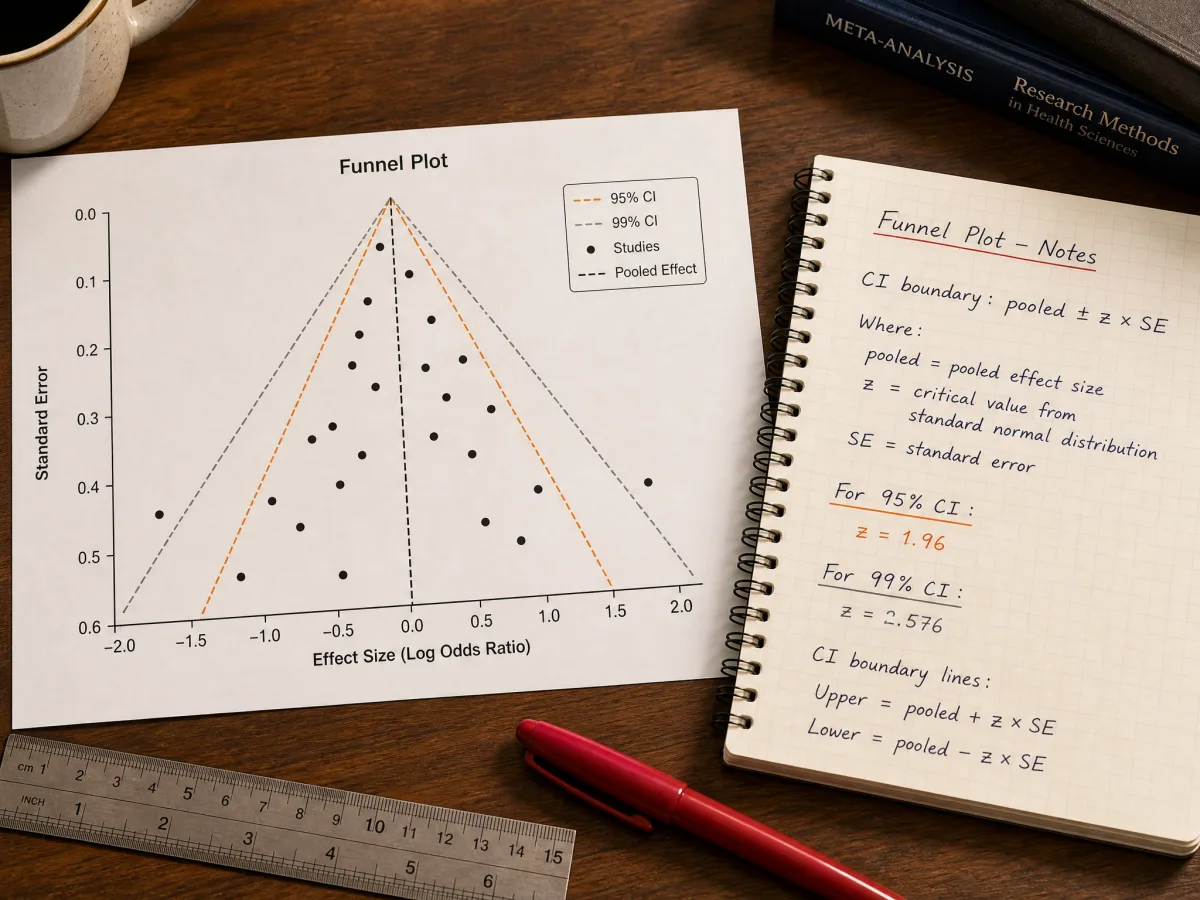 META-ANALYSIS
Research Methods
in Health Sciences
Funnel Plot
95% CI
99% CI
Studies
Pooled Effect
Standard Error
0.0
0.1
0.2
0.3
0.4
0.5
0.6
−2.0 −1.5 −1.0 −0.5 0.0 0.5 1.0 1.5 2.0
Effect Size (Log Odds Ratio)
Funnel Plot – Notes
CI boundary: pooled ± z × SE
Where:
pooled = pooled effect size
z = critical value from
standard normal distribution
SE = standard error
For 95% CI:
z = 1.96
For 99% CI:
z = 2.576
CI boundary lines:
Upper = pooled + z × SE
Lower = pooled − z × SE
cm 1 2 3 4 5 6 7 8 9 10 11 12 13 14 15
INCH 1 2 3 4 5 6